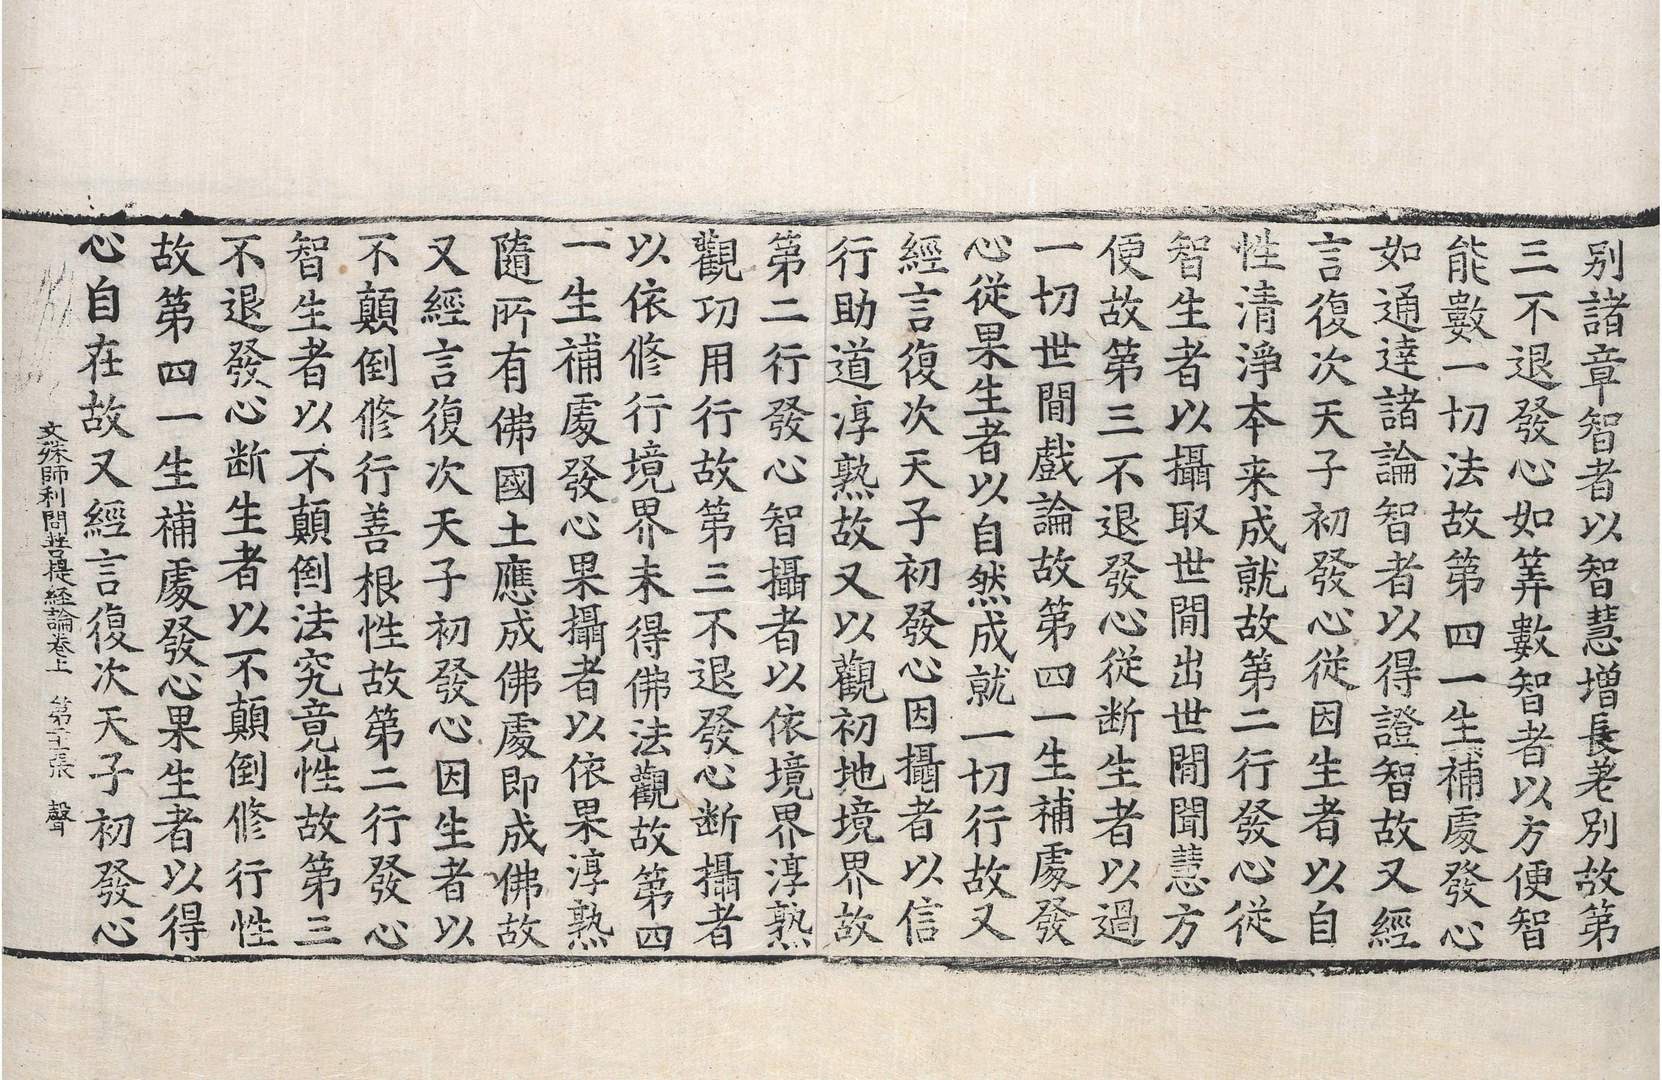 别諸章智者以智慧增長差別故第
三不退發心如筭數智者以方便智
能數一切法故第四一生補處發心
如通達諸論智者以得證智故又經
言復次天子初發心從因生者以自
性清淨本来成就故第二行發心從
智生者以攝取世間出世間聞慧方
便故第三不退發心從断生者以過
一切世間戲論故第四一生補處發
心從果生者以自然成就一切行故又
經言復次天子初發心因攝者以信
行助道淳熟故又以觀初地境界故
第二行發心智攝者以依境界淳熟
觀功用行故第三不退發心断攝者
以依修行境界未得佛法觀故第四
一生補處發心果攝者以依果淳熟
隨所有佛國土應成佛處即成佛故
又經言復次天子初發心因生者以
不顛倒修行善根性故第二行發心
智生者以不顛倒法究竟性故第三
不退發心断生者以不顛倒修行性
故第四一生補處發心果生者以得
心自在故又經言復次天子初發心
文殊師利問菩提経論卷上 第十二張 聲